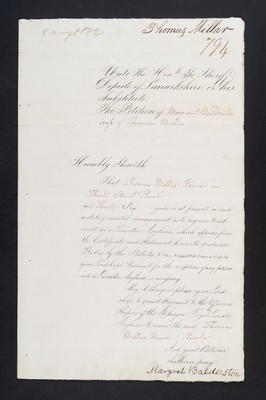 Thomas Millar
794
Unto The Honble. The Sheriff
Depute of Lanarkshire, or his
Substitute.
The Petition of Margaret Balderston
wife of Thomas Millar
Humbly Sheweth
That Thomas Millar
Street
aged Thirty Six years is at present in such
a state of mental derangement as to require treat
ment in a Lunatic Asylum which appears from
the Certificate and Statement herewith produced
That by the Statutes
your Lordship's Warrant for the
into a Lunatic Asylum is necessary
May it therefore please your Lord
ship, to grant Warrant to the Officers &
Keepers of the Glasgow Royal Lunatic
Asylum to receive the said Thomas
Millar
And your Petitioner
shall ever pray
Margret Balderston